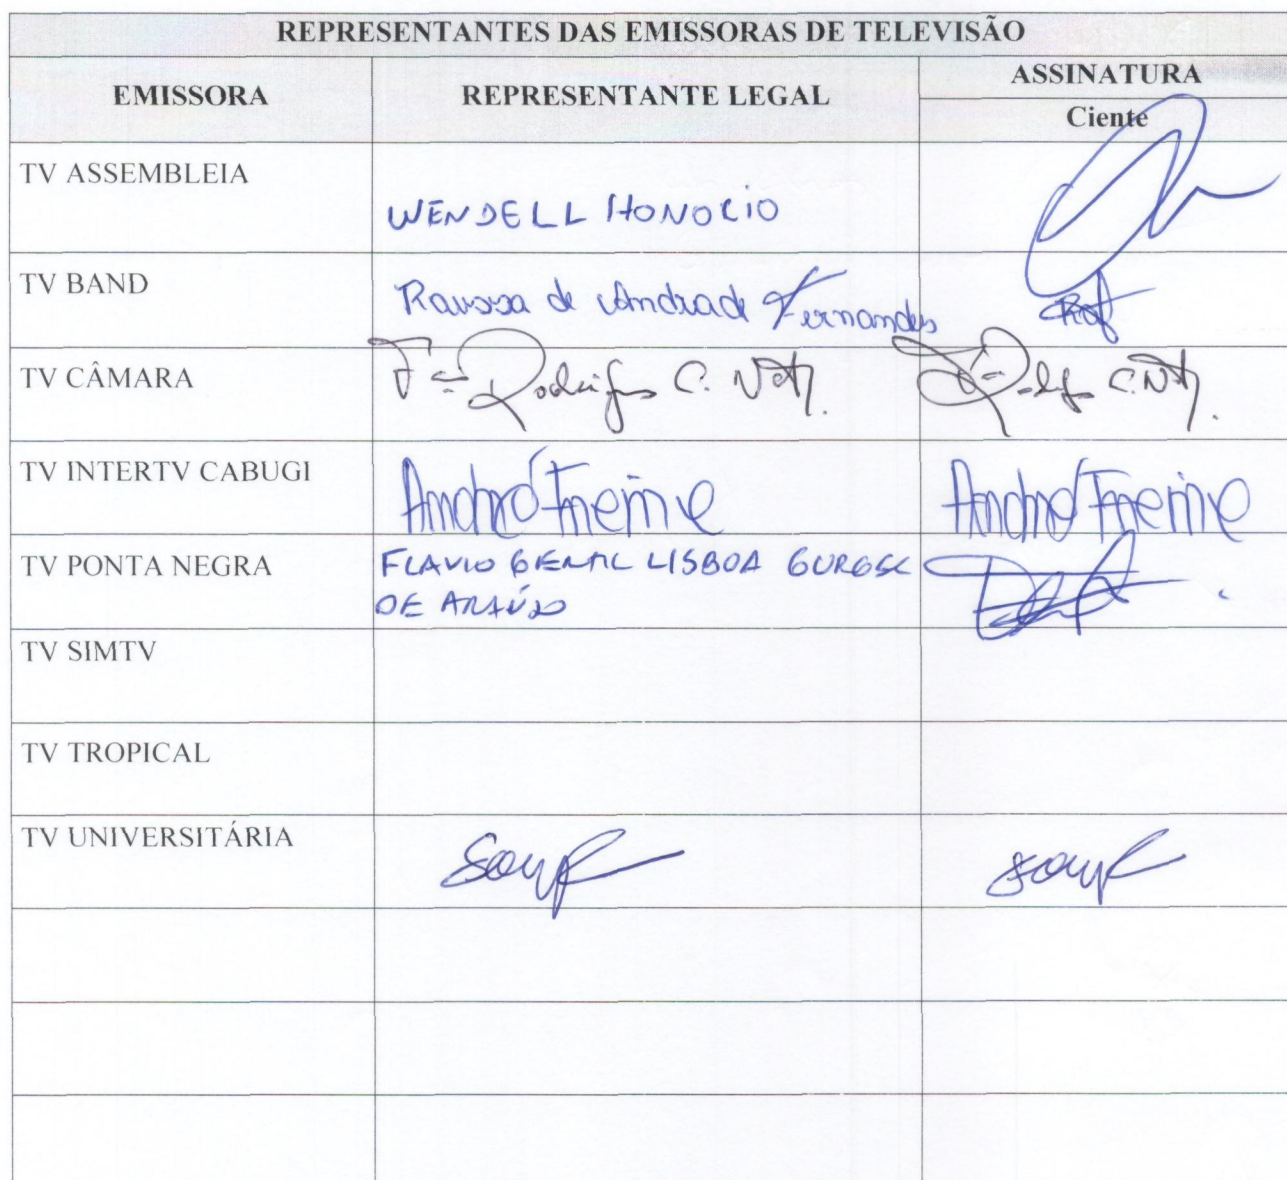 REPRESENTANTES DAS EMISSORAS DE TELEVISÃO
EMISSORA REPRESENTANTE LEGAL ASSINATURA
Ciente
TV ASSEMBLEIA
WENDELL HONORIO
TV BAND
de Andrade Fernandes
TV CÂMARA
Rodrigues C.
TV INTERTV CABUGI
André Freire André Freire
TV PONTA NEGRA
FLAVIO LISBOA GURGEL
DE ARAÚJO
TV SIMTV
TV TROPICAL
TV UNIVERSITÁRIA